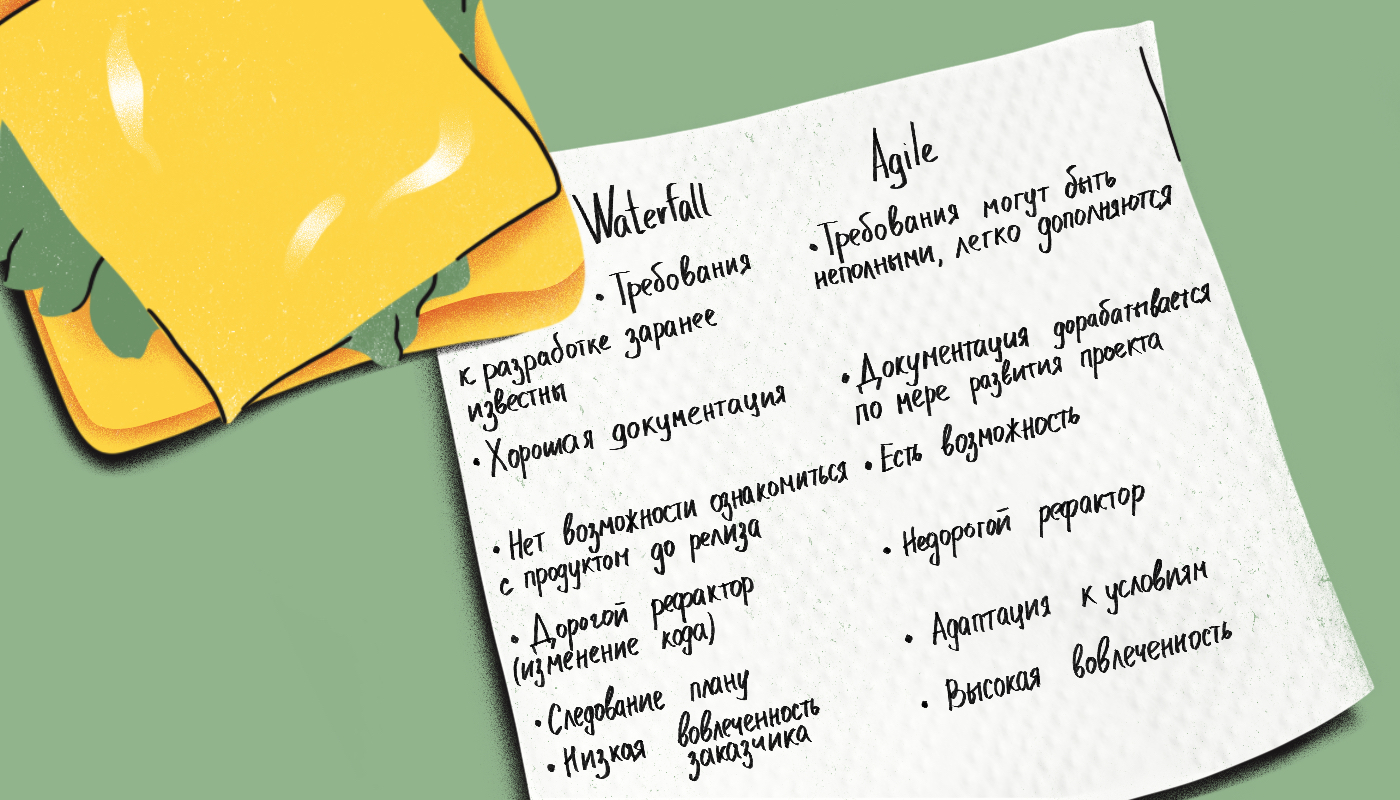 Waterfall
• Требования
к разработке заранее
известны
• Хорошая документация
• Нет возможности ознакомиться
с продуктом до релиза
• Дорогой рефактор
(изменение кода)
• Следование плану
• Низкая вовлеченность
заказчика
Agile
• Требования могут быть
неполными, легко дополняются
• Документация дорабатывается
по мере развития проекта
• Есть возможность
• Недорогой рефактор
• Адаптация к условиям
• Высокая вовлеченность